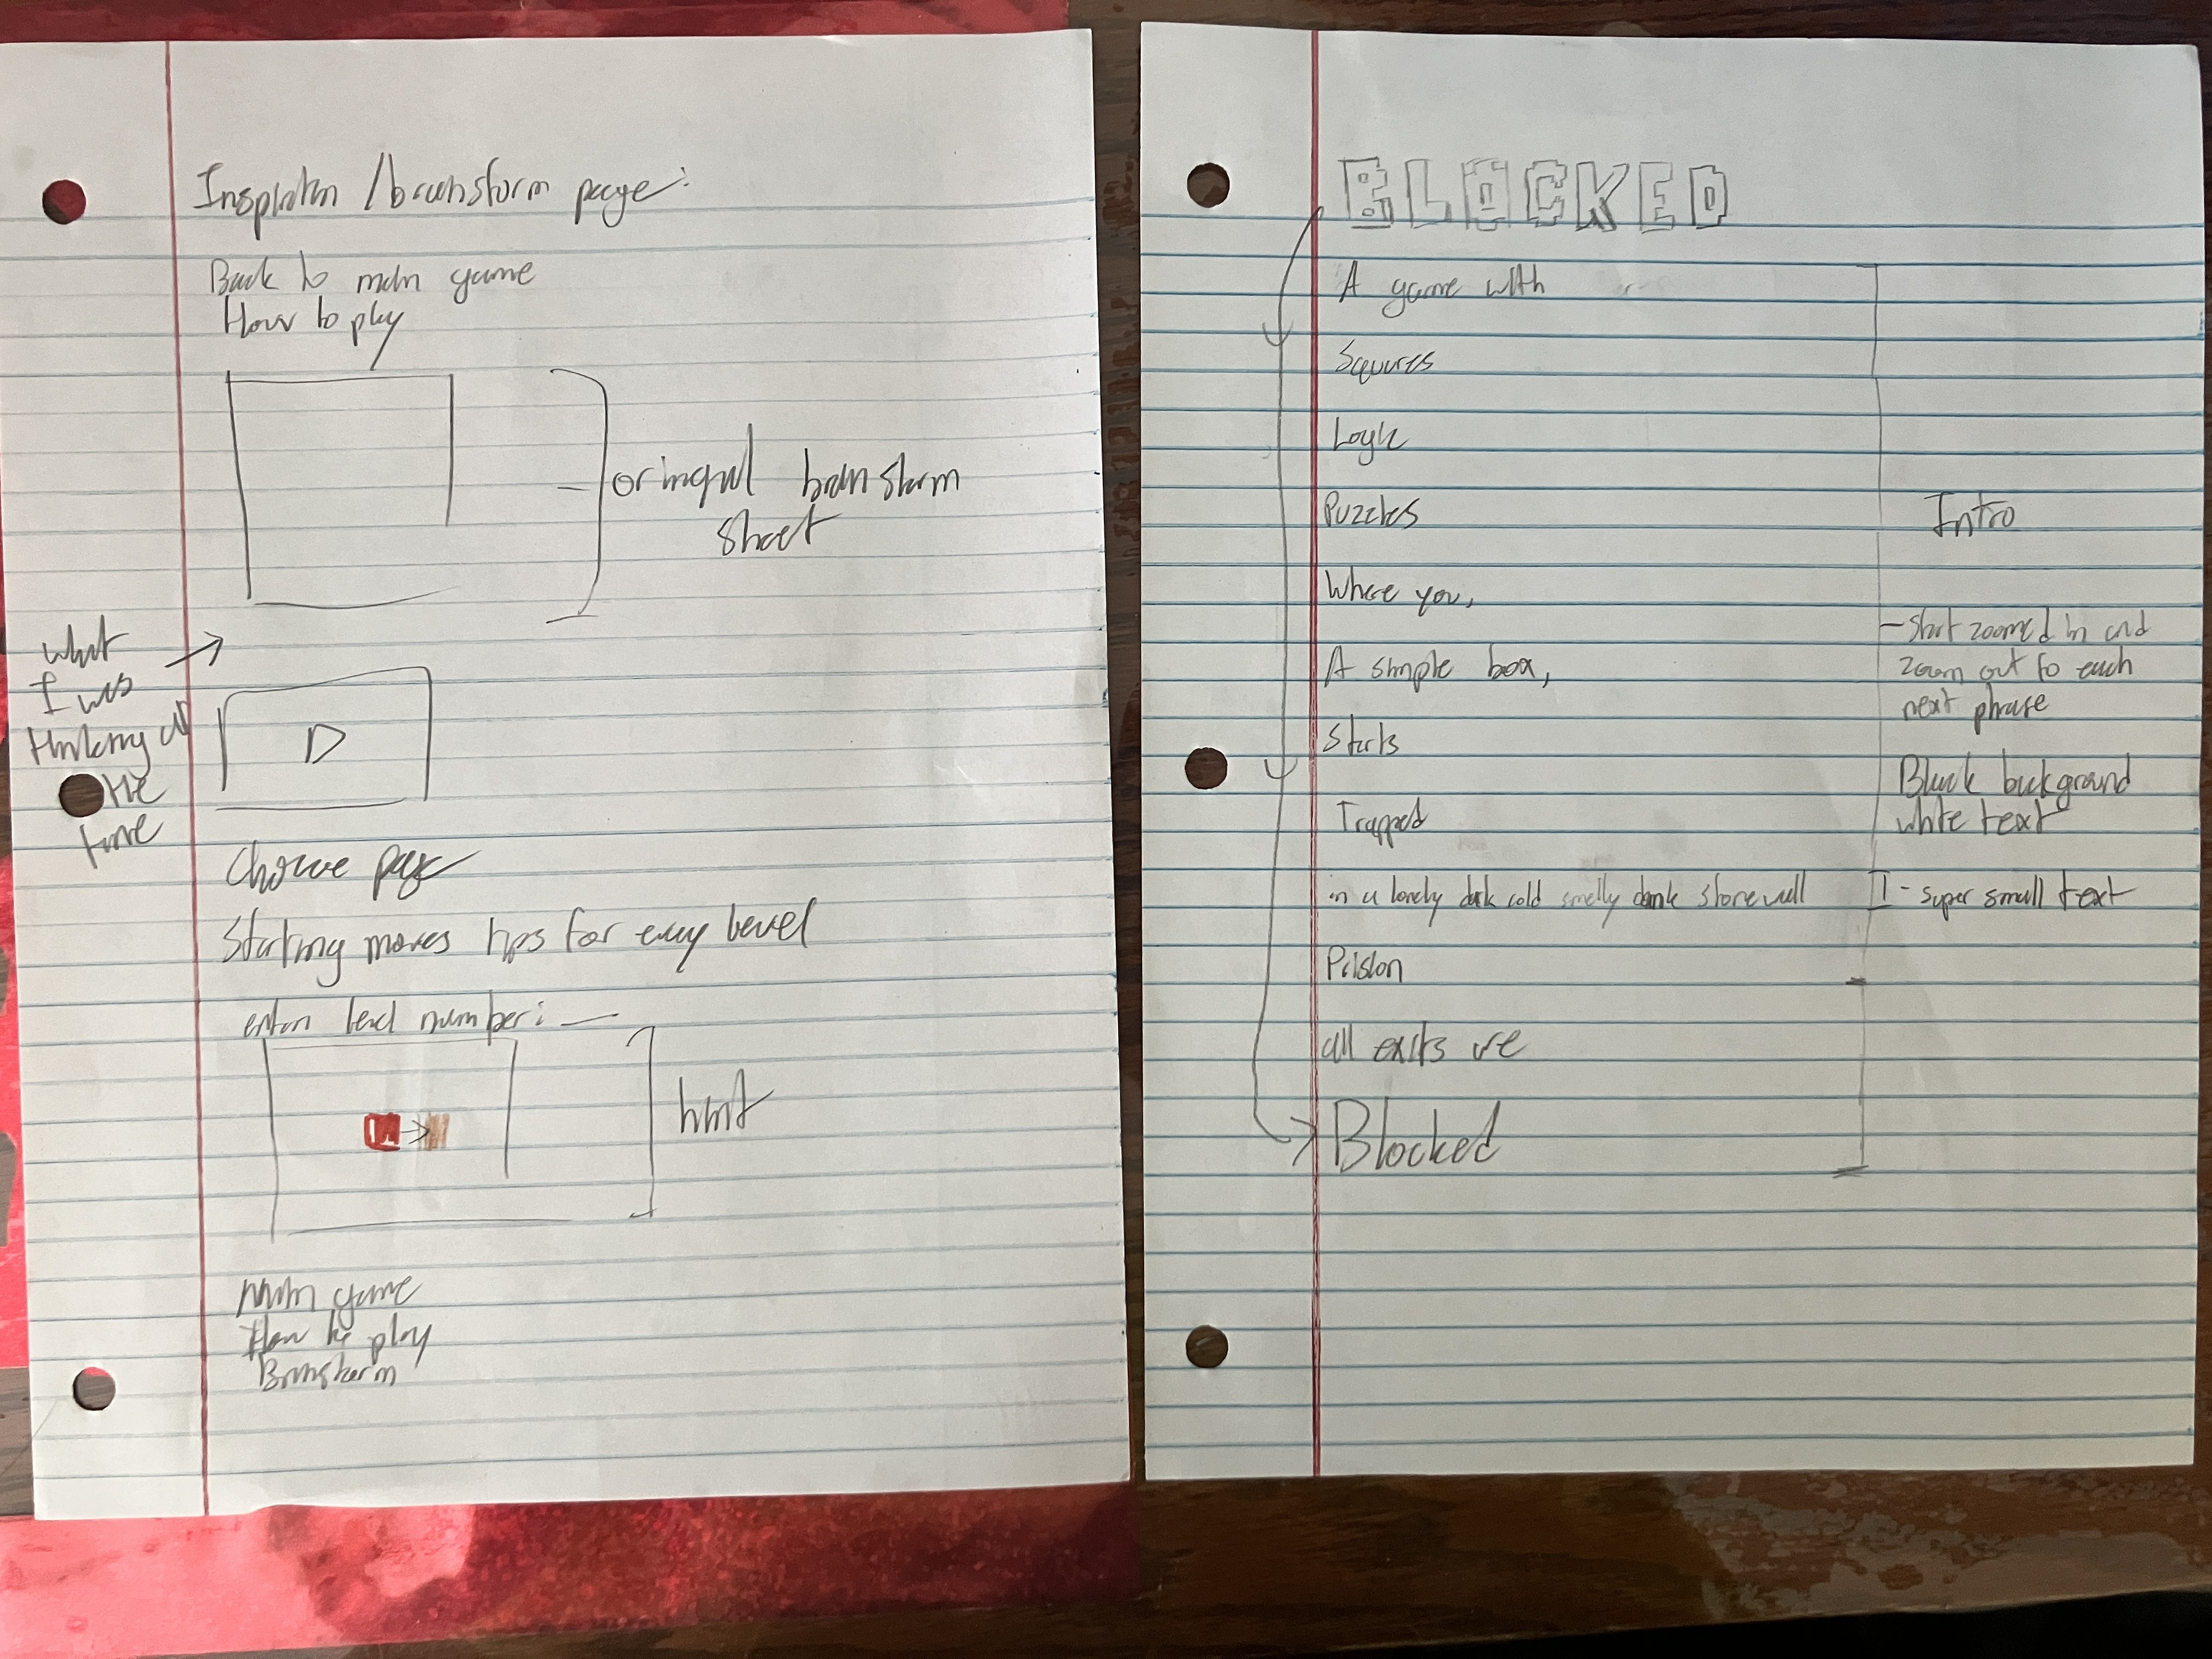 Inspiration / brainstorm page:
Back to main game
How to play
original brainstorm
sheet
what
I was
thinking at
the
time
page
Starting moves tips for every level
enter level number: __
hint
Main game
How to play
Brainstorm
BLOCKED
A game with
Squares
Logic
Puzzles
Where you,
A simple box,
Starts
Trapped
in a lonely dark cold smelly dank stonewall
Prison
all exits are
Blocked
Intro
- Start zoomed in and
zoom out to each
next phrase
Black background
white text
- super small text